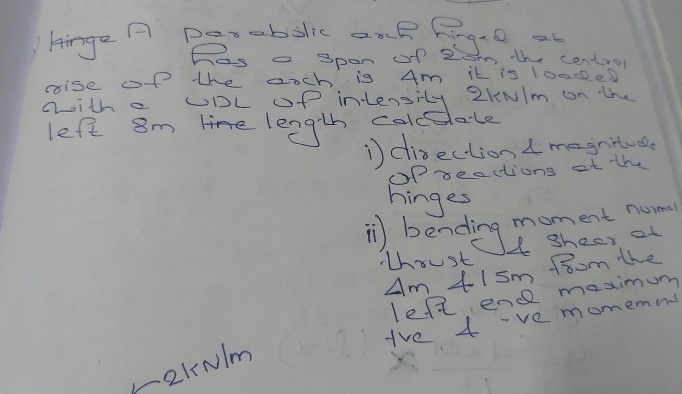 hinge A parabolic arch hinged at
has a span of 20m the central
rise of the arch is 4m it is loaded
with a UDL of intensity 2kN/m on the
left 8m line length calculate
i) direction & magnitude
of reactions at the
hinges
ii) bending moment normal
thrust & shear at
4m & 15m from the
left end maximum
+ve & -ve moment
2kN/m